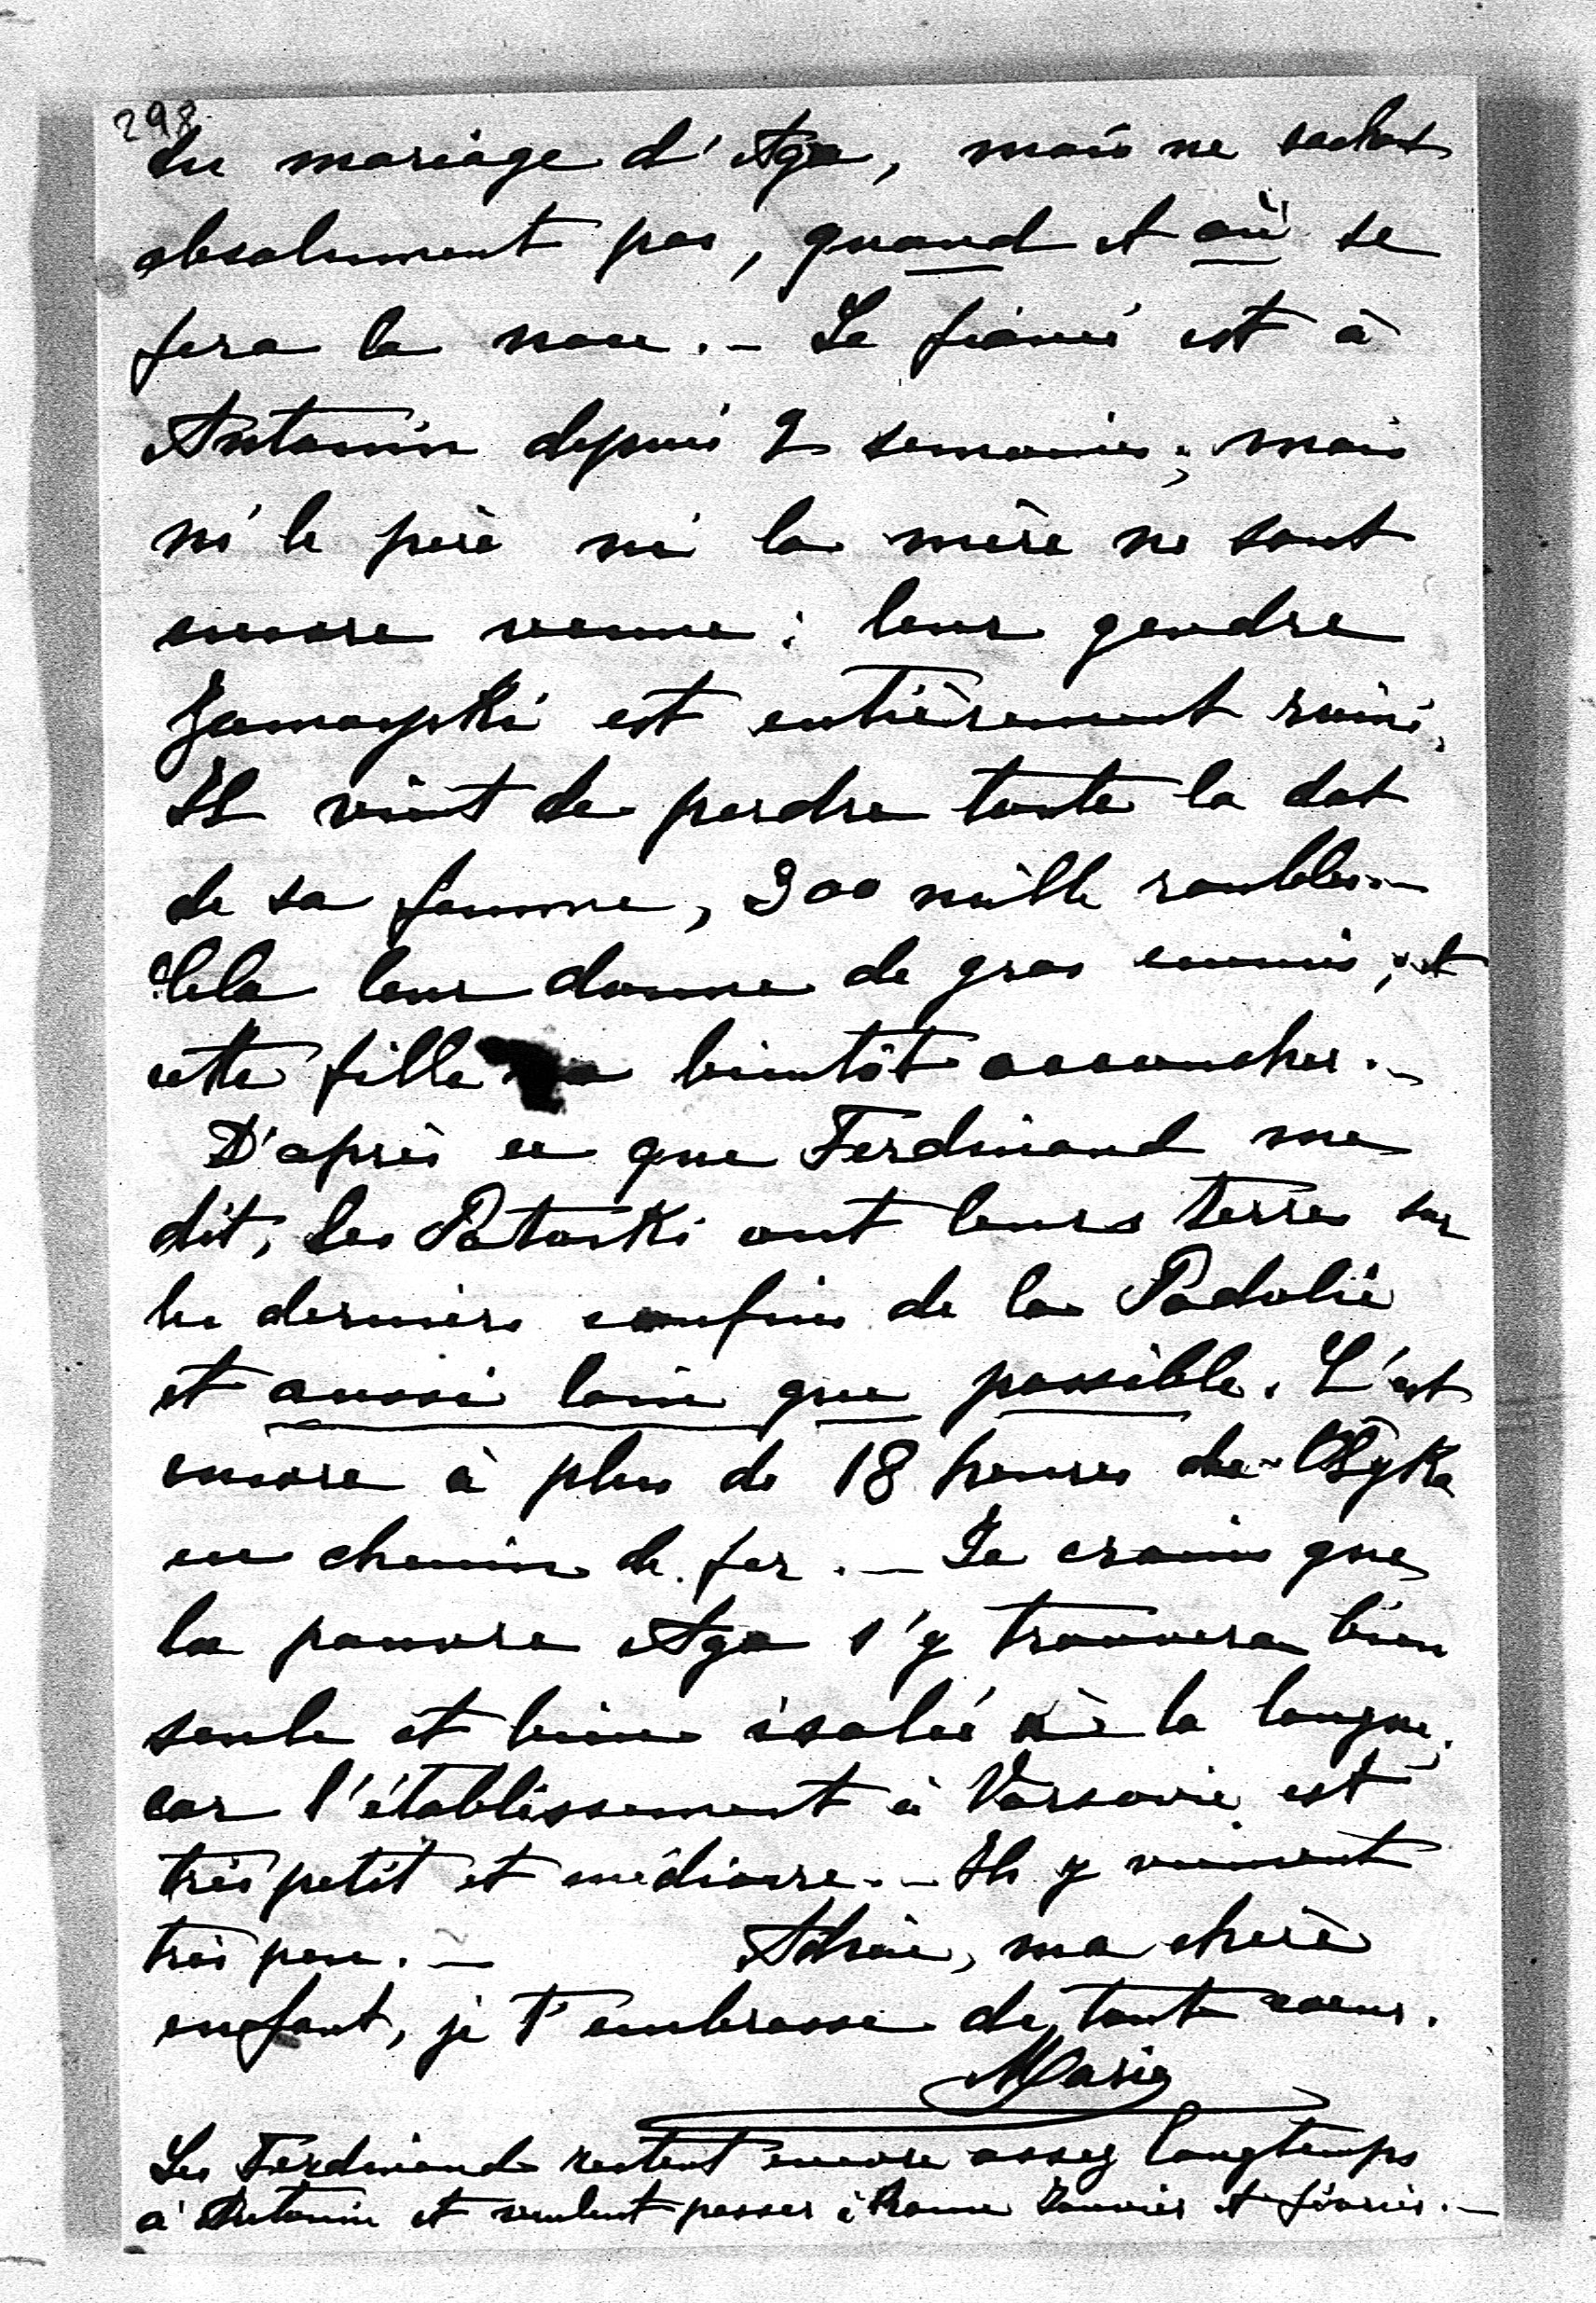 298.
du mariage d'Aga, mais ne sachant
absolument pas, quand et où se
fera la noce. – Le fiancé est à
Antonin depuis 2 semaines; mais
ni le père ni la mère ne sont
encore venus: leur gendre
Zamoyski est entièrement ruiné,
Il vient de perdre toute la dot
de sa femme, 300 mille roubles. –
Cela leur donne de gros ennuis; et
cette fille va bientôt accoucher. –
D'après ce que Ferdinand me
dit, les Potocki ont leurs terres sur
les derniers confins de la Podolie
et aussi loin que possible. C'est
encore à plus de 18 heures de Olyka
en chemin de fer. – Je crains que
la pauvre Aga s'y trouvera bien
seule et bien isolée à la longue,
car l'établissement à Varsovie est
très petit et médiocre. – Ils y viennent
très peu. – Adieu, ma chère
enfant, je t'embrasse de tout coeur.
Marie
Les Ferdinand restent encore assez longtemps
à Antonin et veulent passer à Rome Janvier et février. –